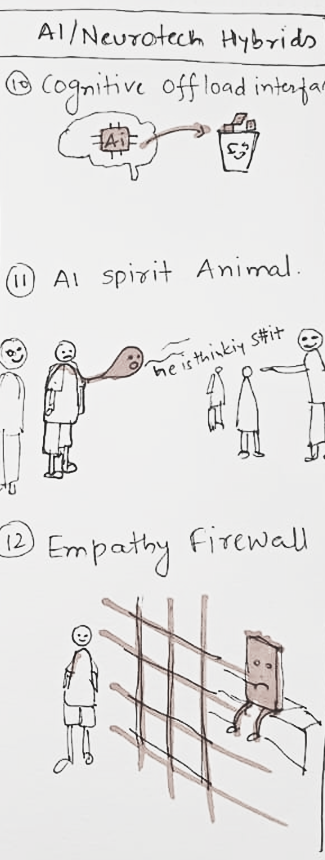 AI/Neurotech Hybrids
10 Cognitive Offload interfa
Ai
11 AI spirit Animal.
he is thinkiy s#it
12 Empathy Firewall